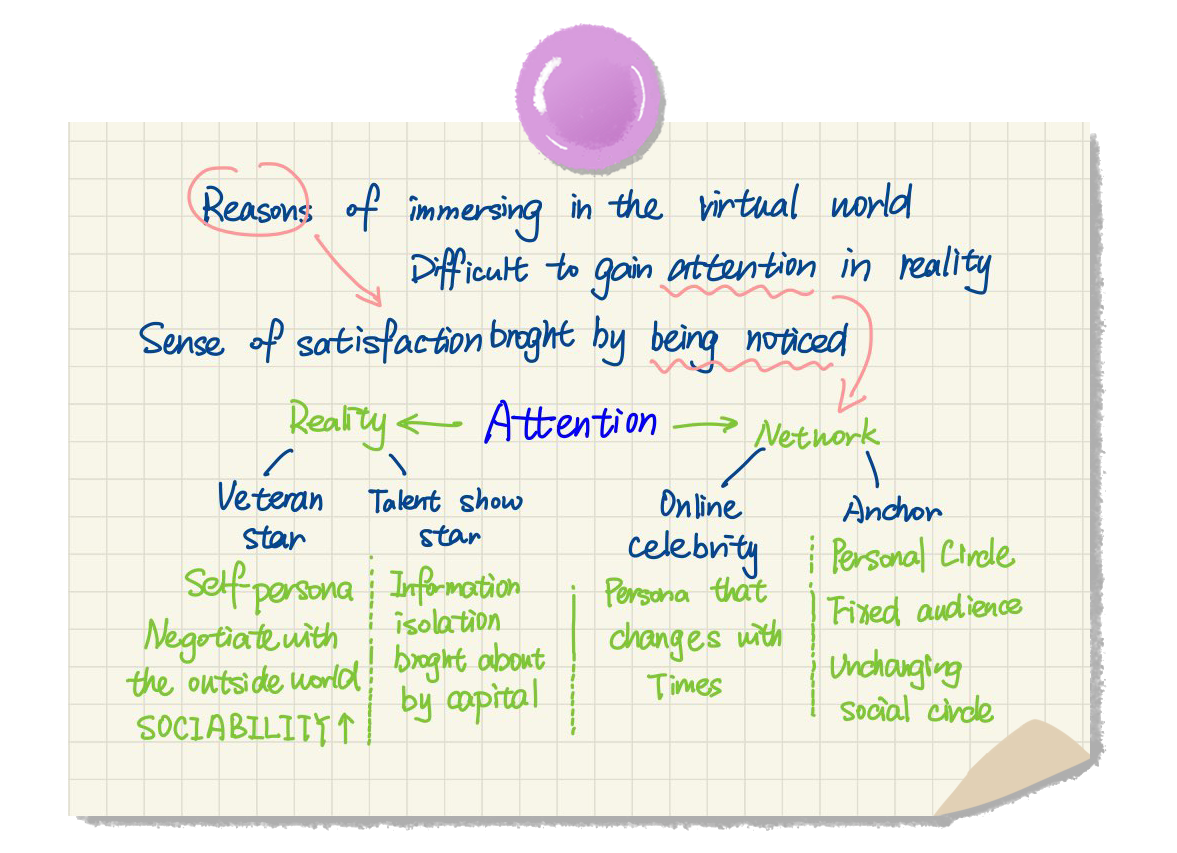 Reasons of immersing in the virtual world
Difficult to gain attention in reality
Sense of satisfaction broght by being noticed
Reality ← Attention → Network
Veteran
star
Self-persona
Negotiate with
the outside world
SOCIABILITY↑
Talent show
star
Information
isolation
broght about
by capital
Online
celebrity
Persona that
changes with
Times
Anchor
Personal Circle
Fixed audience
Unchanging
social circle